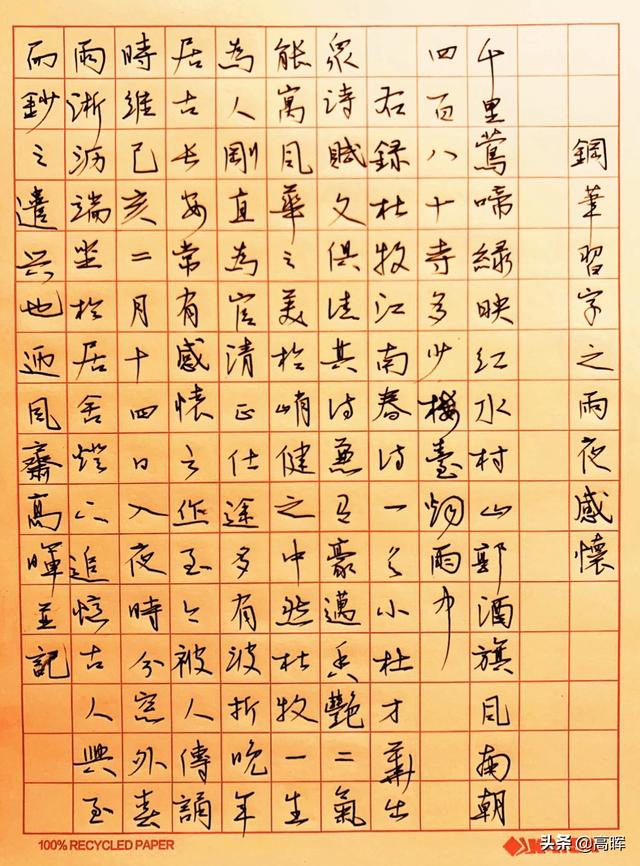 鋼筆習字之雨夜感懷
千里鶯啼綠映紅水村山郭酒旗風南朝
四百八十寺多少樓臺烟雨中
右錄杜牧江南春詩一首小杜才華出
眾詩賦文俱佳其詩兼有豪邁香艷二氣
能寓風華之美於峭健之中然杜牧一生
為人剛直為官清正仕途多有波折晚年
居古長安常有感懷之作至今被人傳誦
時維己亥二月十四日入夜時分窗外春
雨淅瀝端坐於居舍燈下追憶古人興至
而鈔之遣興也迺風齋高暉並記
100% RECYCLED PAPER
头条 @高晖